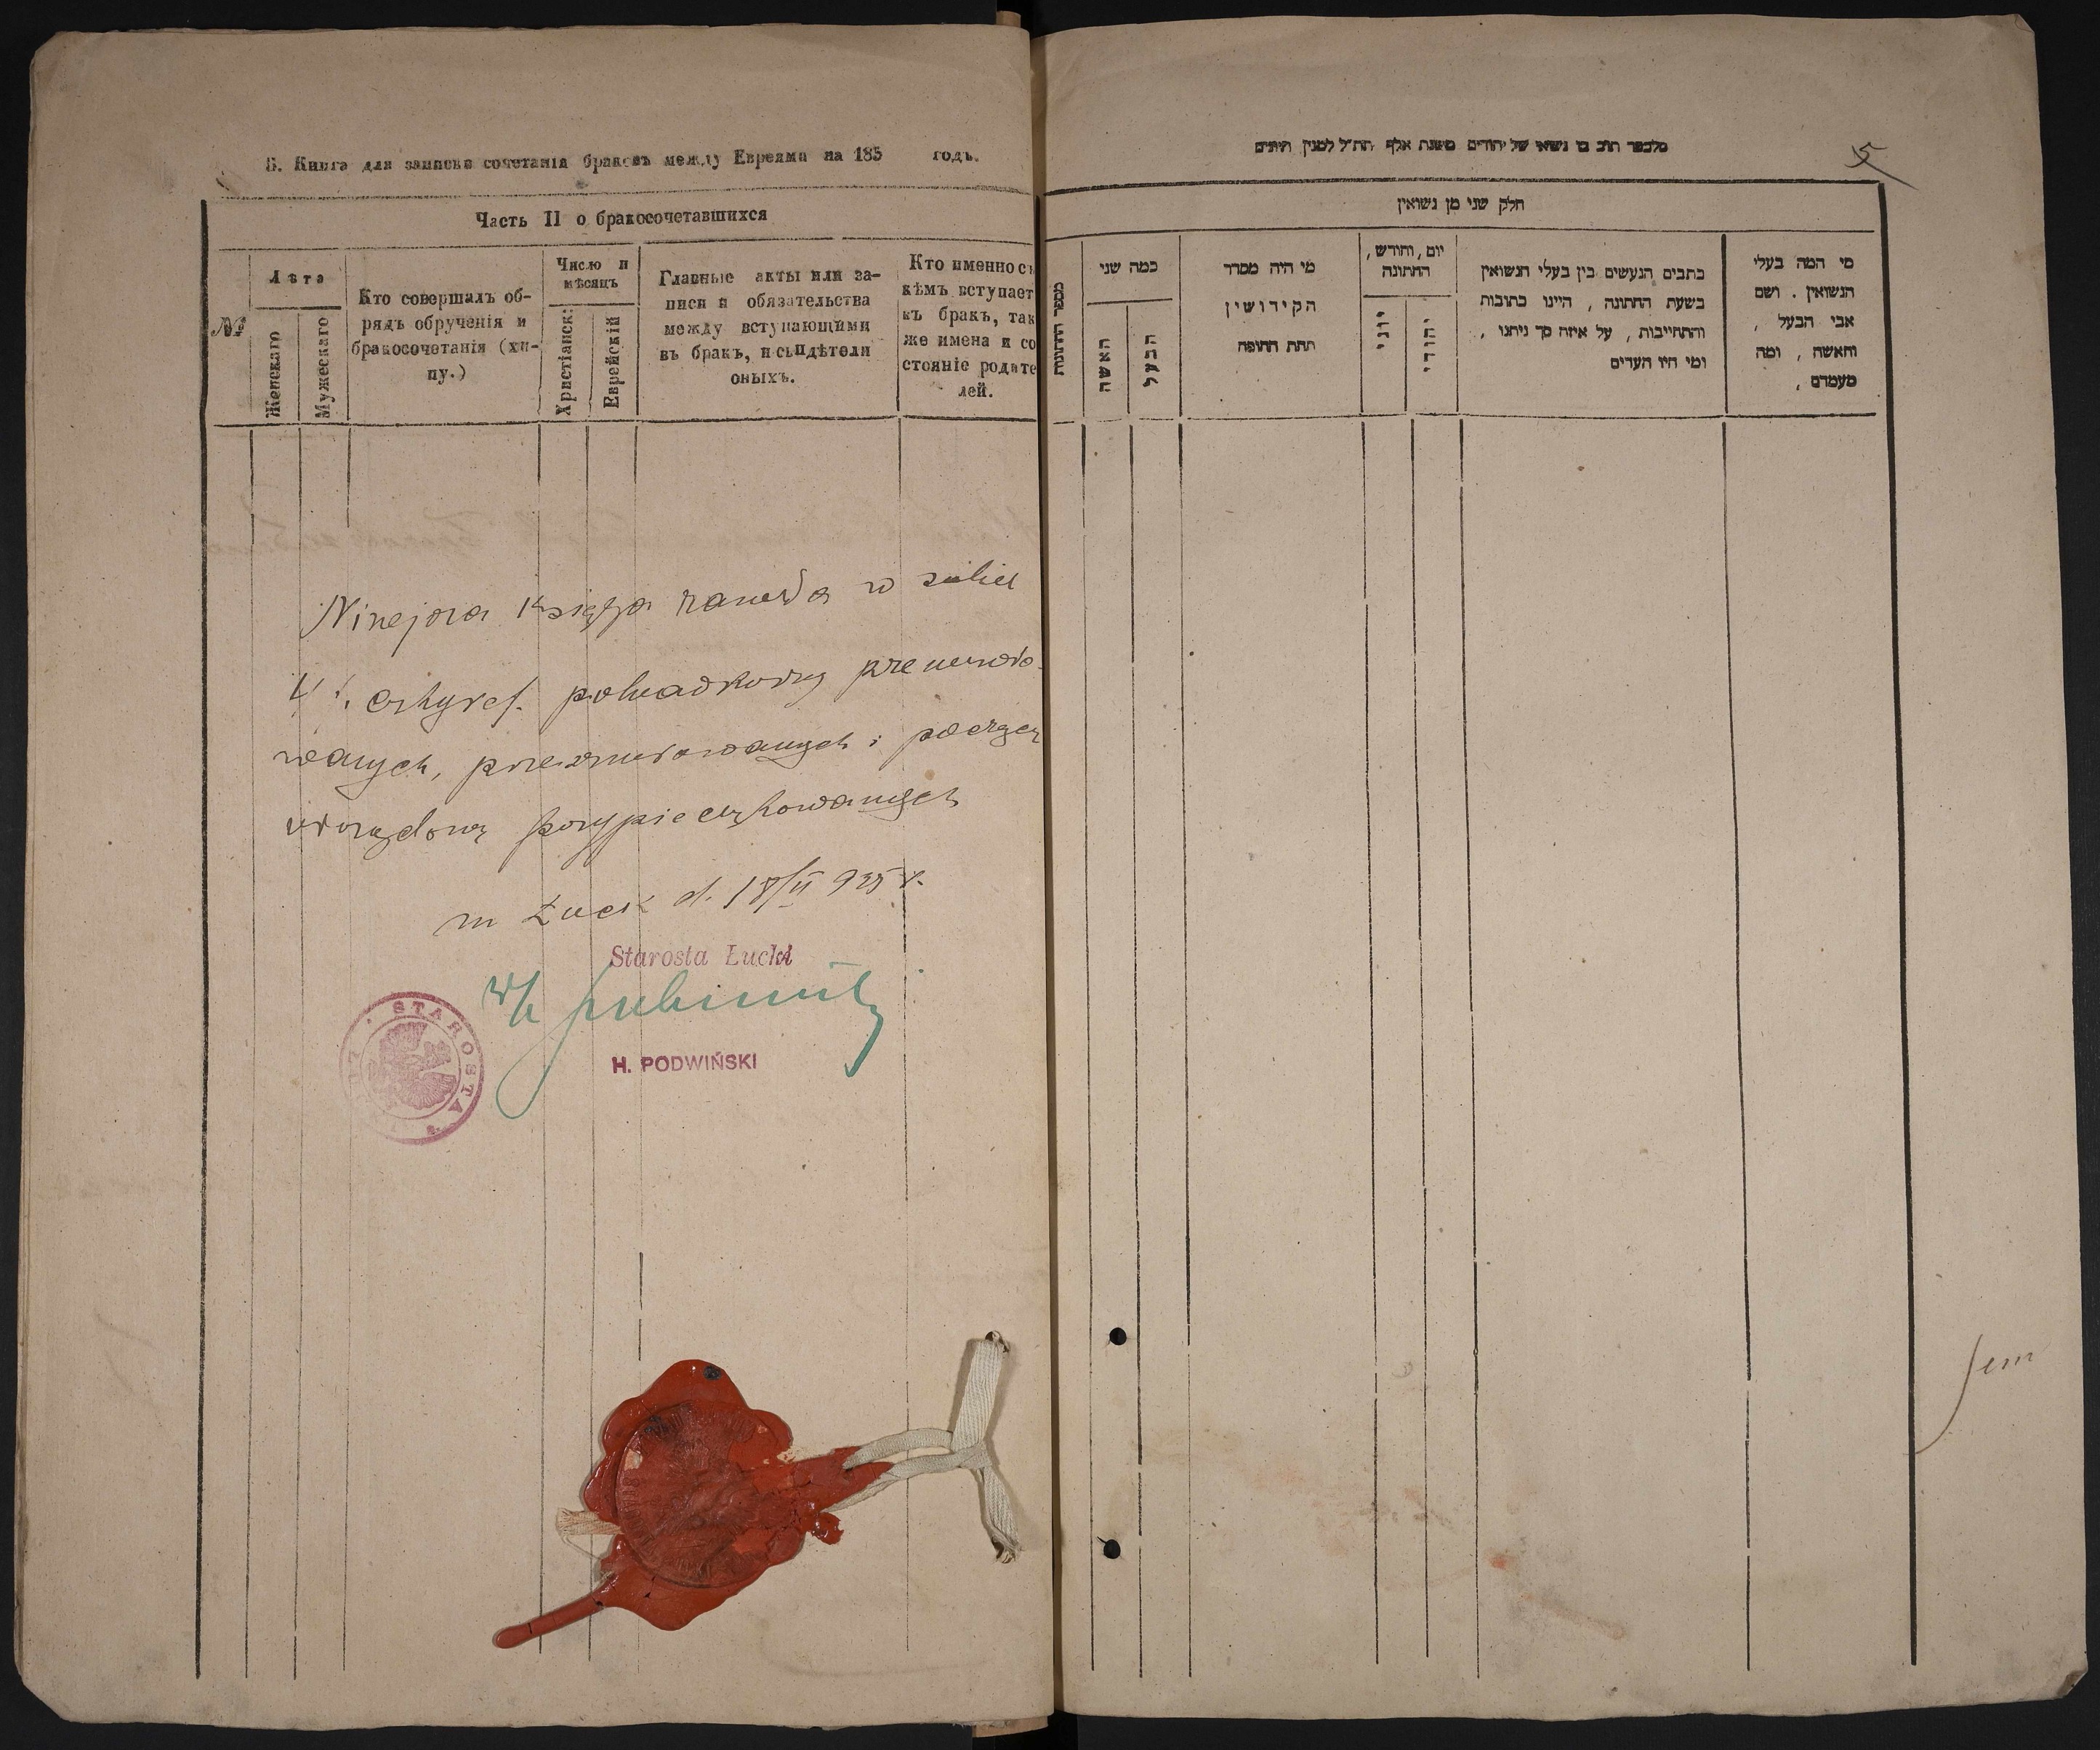 5. Книга для записки сочетанія браковъ между Евреями на 185 годъ.
Часть II о бракосочетавшихся
№
Лѣта
Женскаго
Мужескаго
Кто совершалъ об-
рядъ обрученія и
бракосочетанія (хи-
пу.)
Число и
мѣсяцъ
Христіанск:
Еврейскій
Главные акты или за-
писи и обязательства
между вступающими
въ бракъ, и свидѣтели
оныхъ.
Кто именно съ
кѣмъ вступает
въ бракъ, так
же имена и со
стояніе родите
лей.
Niniejsza księga zawiera w sobie
kart
wanych, przesznurowanych i pieczęcią
urzędową przypieczętowanych
m Łuck d. 18/II 925 r.
Starosta Łucki
H. PODWIŃSKI
STAROSTA
5
חלק שני מן נשואין
מספר החתונות
כמה שני
האשה
הבעל
מי היה מסדר
הקידושין
תחת החופה
יום, וחודש,
החתונה
יוני
יהודי
כתבים הנעשים בין בעלי הנשואין
בשעת החתונה, היינו כתובות
והתחייבות, על איזה סך ניתנו,
ומי היו העדים
מי המה בעלי
הנשואין. ושם
אבי הבעל,
והאשה, ומה
מעמדם,